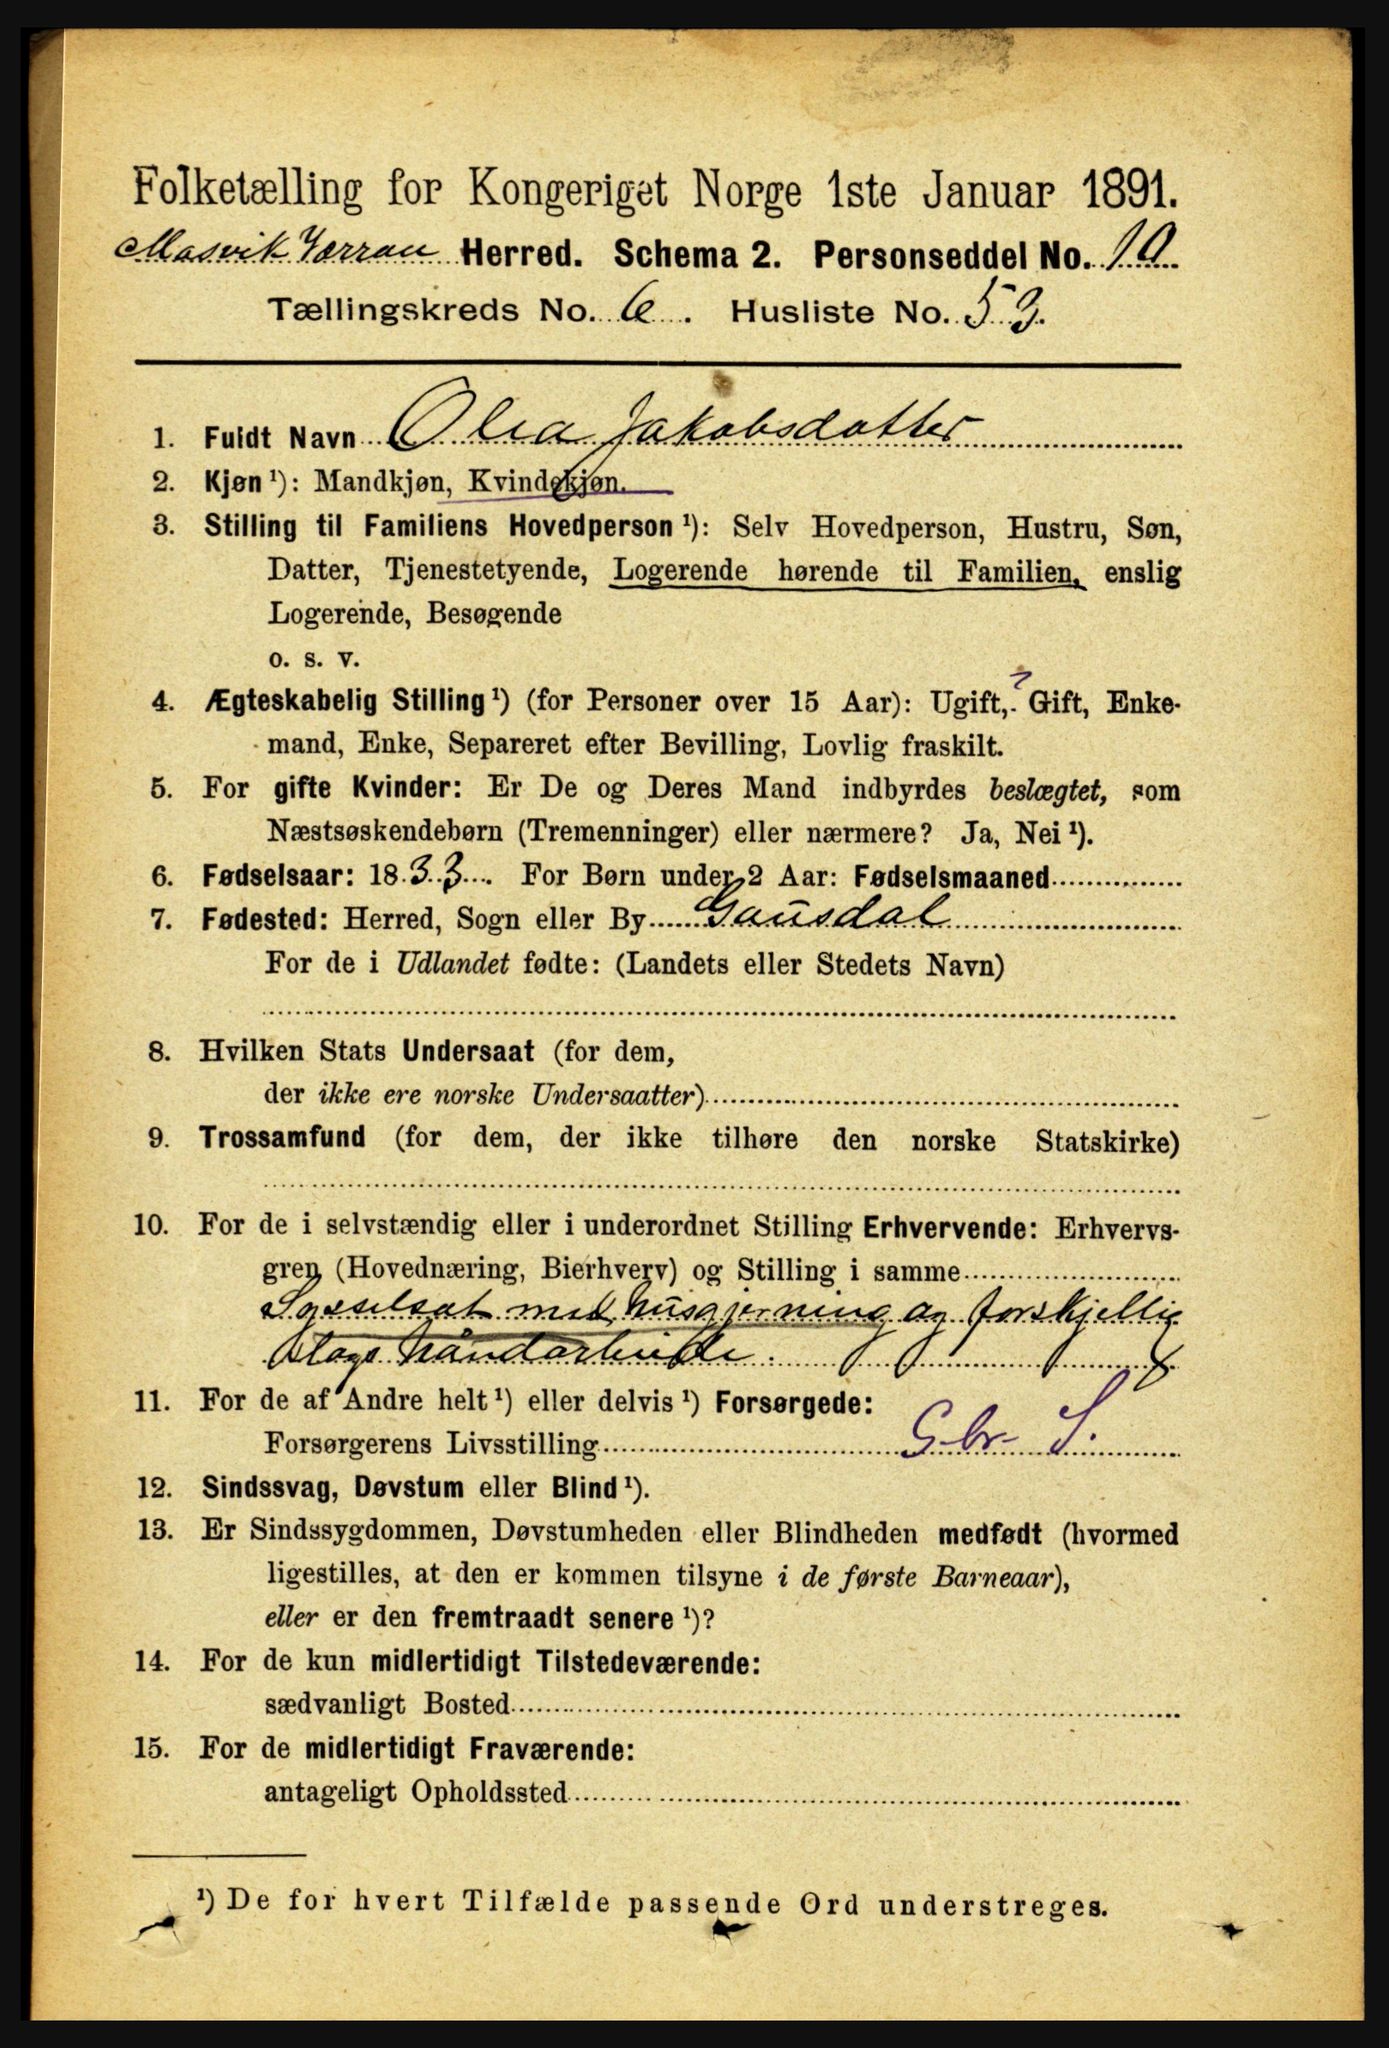 Folketælling for Kongeriget Norge 1ste Januar 1891.
Mosvik Værran Herred. Schema 2. Personseddel No. 10
Tællingskreds No. 6. Husliste No. 53.
1. Fuldt Navn Olea Jakobsdatter
2. Kjøn ¹): Mandkjøn, Kvindekjøn.
3. Stilling til Familiens Hovedperson ¹): Selv Hovedperson, Hustru, Søn,
Datter, Tjenestetyende, Logerende hørende til Familien, enslig
Logerende, Besøgende
o. s. v.
4. Ægteskabelig Stilling ¹) (for Personer over 15 Aar): Ugift, ? Gift, Enke-
mand, Enke, Separeret efter Bevilling, Lovlig fraskilt.
5. For gifte Kvinder: Er De og Deres Mand indbyrdes beslægtet, som
Næstsøskendebørn (Tremenninger) eller nærmere? Ja, Nei ¹).
6. Fødselsaar: 1833. For Børn under 2 Aar: Fødselsmaaned
7. Fødested: Herred, Sogn eller By Gausdal
For de i Udlandet fødte: (Landets eller Stedets Navn)
8. Hvilken Stats Undersaat (for dem,
der ikke ere norske Undersaatter)
9. Trossamfund (for dem, der ikke tilhøre den norske Statskirke)
10. For de i selvstændig eller i underordnet Stilling Erhvervende: Erhvervs-
gren (Hovednæring, Bierhverv) og Stilling i samme
Sysselsat med husgjerning og forskjellig
slags håndarbeide.
11. For de af Andre helt ¹) eller delvis ¹) Forsørgede:
Forsørgerens Livsstilling G-br- S.
12. Sindssvag, Døvstum eller Blind ¹).
13. Er Sindssygdommen, Døvstumheden eller Blindheden medfødt (hvormed
ligestilles, at den er kommen tilsyne i de første Barneaar),
eller er den fremtraadt senere ¹)?
14. For de kun midlertidigt Tilstedeværende:
sædvanligt Bosted
15. For de midlertidigt Fraværende:
antageligt Opholdssted
¹) De for hvert Tilfælde passende Ord understreges.